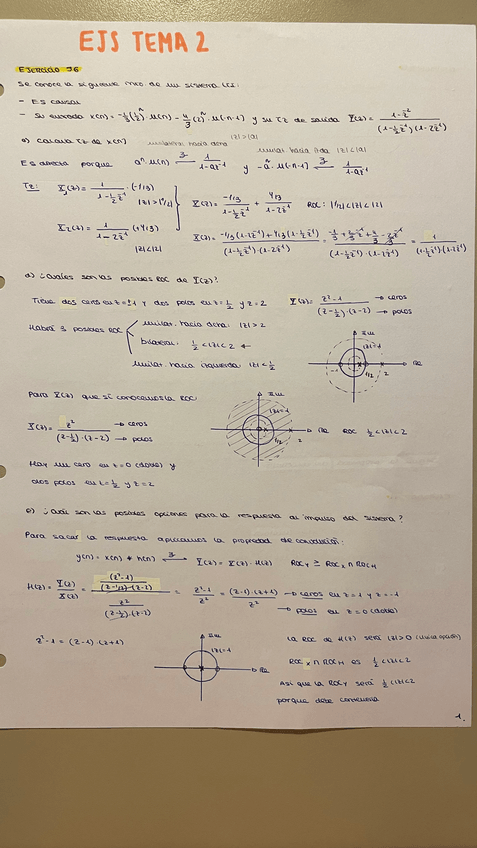 EJS TEMA 2
EJERCICIO 36
Se conoce la siguiente info de un sistema LCI:
- Es causal
- Su entrada x(n) = -1/3 (1/2)^n · u(n) - 4/3 (2)^n · u(-n-1) y su TZ de salida Y(z) = (1 - z^-2) / ((1 - 1/2 z^-1)(1 - 2z^-1))
a) Calcula TZ de x(n)
unilateral hacia dcha |z|>|a|
unilat. hacia izda |z|<|a|
Es directa porque a^n · u(n) ↔ 1/(1 - az^-1) y -a^n · u(-n-1) ↔ 1/(1 - az^-1)
TZ: X1(z) = 1/(1 - 1/2 z^-1) · (-1/3) |z|>|1/2|
X(z) = (-1/3)/(1 - 1/2 z^-1) + (4/3)/(1 - 2z^-1) ROC: |1/2|<|z|<|2|
X2(z) = 1/(1 - 2z^-1) · (+4/3) |z|<|2|
X(z) = (-1/3(1-2z^-1) + 4/3(1 - 1/2 z^-1)) / ((1 - 1/2 z^-1)·(1 - 2z^-1)) = (-1/3 + 2/3 z^-1 + 4/3 - 2/3 z^-1) / ((1 - 1/2 z^-1)·(1 - 2z^-1)) = 1 / ((1 - 1/2 z^-1)·(1 - 2z^-1))
d) ¿Cuáles son las posibles ROC de Y(z)?
Tiene dos ceros en z=±1 y dos polos en z=1/2 y z=2
Y(z) = (z²-1) / ((z-1/2)·(z-2)) → ceros → polos
Habrá 3 posibles ROC
unilat. hacia dcha: |z|>2
bilateral: 1/2<|z|<2 ←
unilat. hacia izquierda: |z|<1/2
Im
|z|=1
Re
-1 1/2 2
Para X(z) que sí conocemos la ROC:
X(z) = z² / ((z-1/2)·(z-2)) → ceros → polos
Im
|z|=1
Re
1/2 2
ROC 1/2<|z|<2
Hay un cero en z=0 (doble) y
dos polos en z=1/2 y z=2
e) ¿Cuál son las posibles opciones para la respuesta al impulso del sistema?
Para sacar la respuesta aplicamos la propiedad de convolución:
y(n) = x(n) * h(n) ↔ Y(z) = X(z)·H(z) ROCY ⊇ ROCX ∩ ROCH
H(z) = Y(z)/X(z) = ((z²-1)/((z-1/2)·(z-2))) / (z²/((z-1/2)·(z-2))) = (z²-1)/z² = (z-1)·(z+1)/z² → ceros en z=1 y z=-1
→ polos en z=0 (doble)
z²-1 = (z-1)·(z+1)
Im
|z|=1
Re
La ROC de H(z) será |z|>0 (única opción)
ROCX ∩ ROCH es 1/2<|z|<2
Así que la ROCY será 1/2<|z|<2
porque debe contenerla
1.